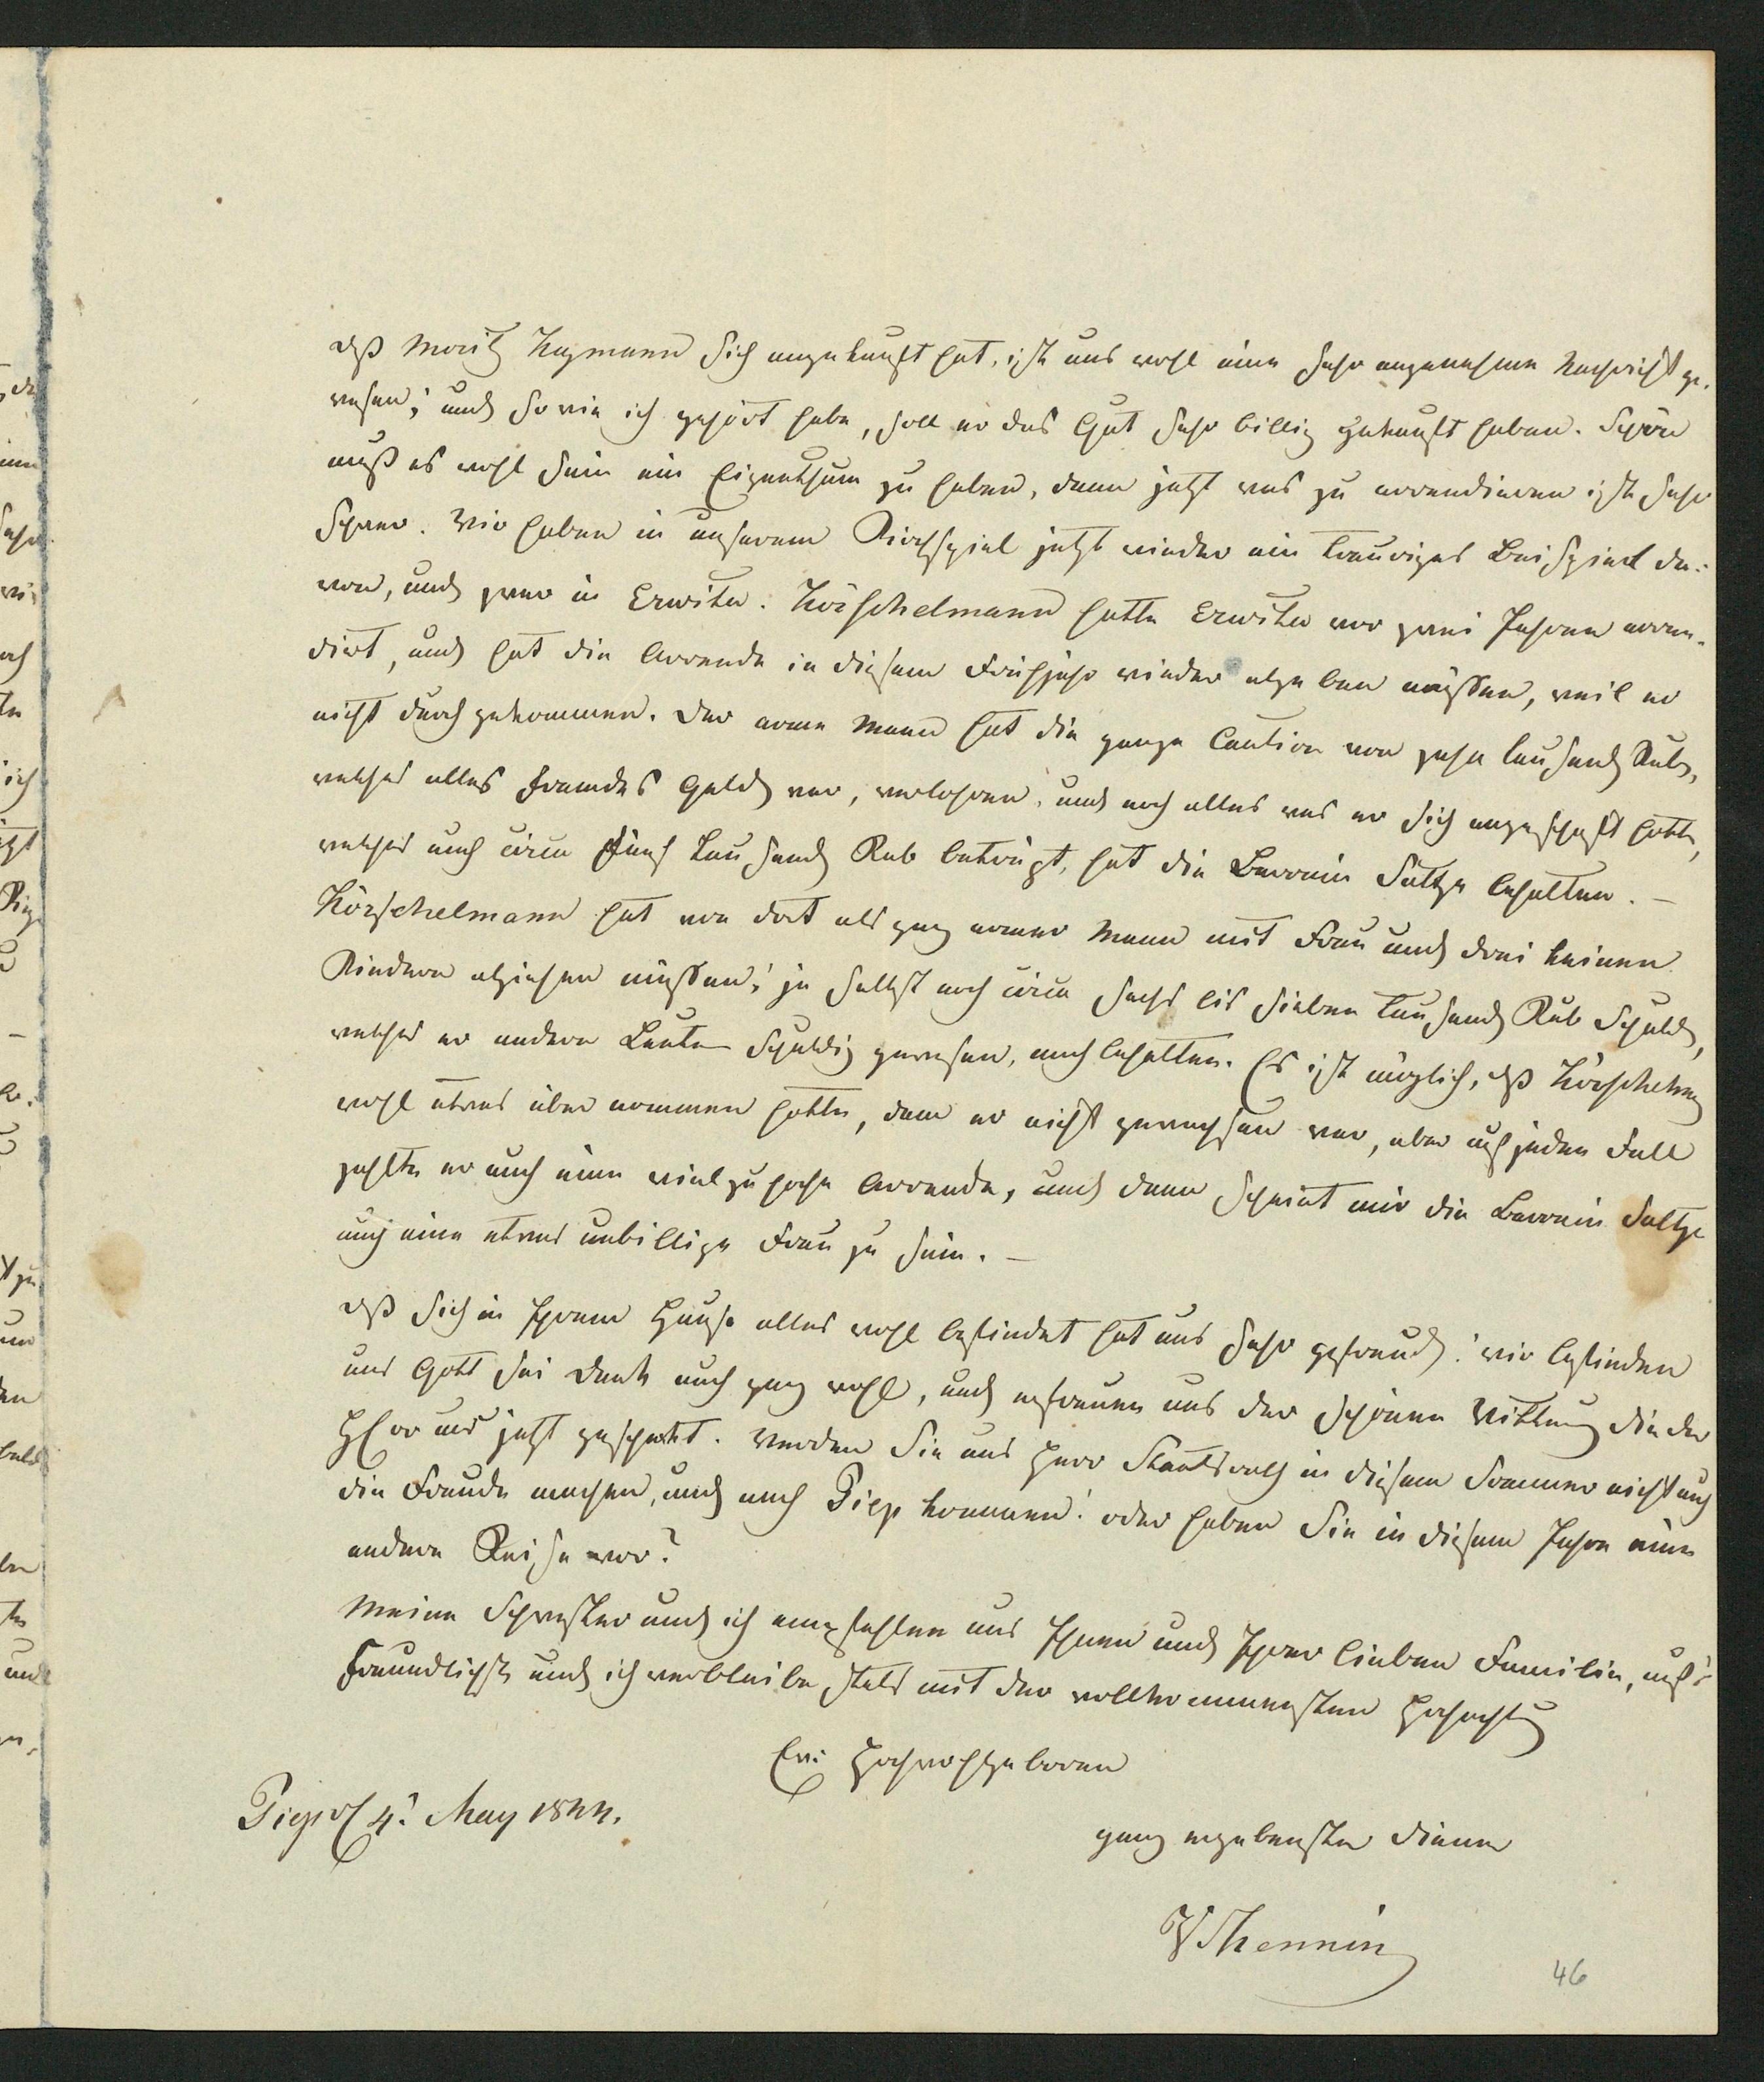 daß Moritz Hagmann sich angekauft hat, ist uns wohl eine sehr angenehme Nachricht ge-
wesen; und so wie ich gehört habe, soll er das Gut sehr billig gekauft haben. Schön
muß es wohl sein ein Eigenthum zu haben, denn jetzt was zu arrendieren ist sehr
schwer. Wir haben in unserem Kirchspiel jetzt wieder ein trauriges Beispiel da-
von, und zwar in Erwita. Hörschelmann hatte Erwita vor zwei Jahren arren-
dirt, und hat die Arrende in diesem Frühjahr wieder abgeben müssen, weil er
nicht durchgekommen. Der arme Mann hat die ganze Caution von zehn tausend Rub,
welches alles fremdes Geld war, verlohren, und noch alles was er sich angeschaft hatte,
welches auch circa fünf tausend Rub beträgt, hat die Baronin Saltza behalten. —
Hörschelmann hat von dort als ganz armer Mann mit Frau und drei kleinen
Kindern abziehen müssen; ja selbst noch circa sechs bis sieben tausend Rub Schuld,
welches er andern Leuten schuldig gewesen, nach behalten. Es ist möglich, daß Hörschelm
wohl etwas über nommen hatte, dem er nicht gewachsen war, aber auf jeden Fall
zahlte er auch eine viel zu hohe Arrende, und dann scheint mir die Baronin Saltza
auch eine etwas unbillige Frau zu sein. —
daß sich in Ihrem Hause alles wohl befindet hat uns sehr gefreud; wir befinden
uns Gott sei Dank auch ganz wohl, und erfreuen uns der schönen Wittrung die der
Herr uns jetzt geschenkt. Werden Sie uns Herr Staatsrath in diesem Sommer nicht auch
die Freude machen, und nach Piep kommen! oder haben Sie in diesem Jahre eine
andere Reise vor?
Meine Schwester und ich empfehlen uns Ihnen und Ihrer lieben Familie, auf's
Freundlichste und ich verbleibe stets mit der vollkommensten Hochachtung
Ew: Hochwohlgeboren
Piep d 4t May 1844.
ganz ergebenster Diener
46